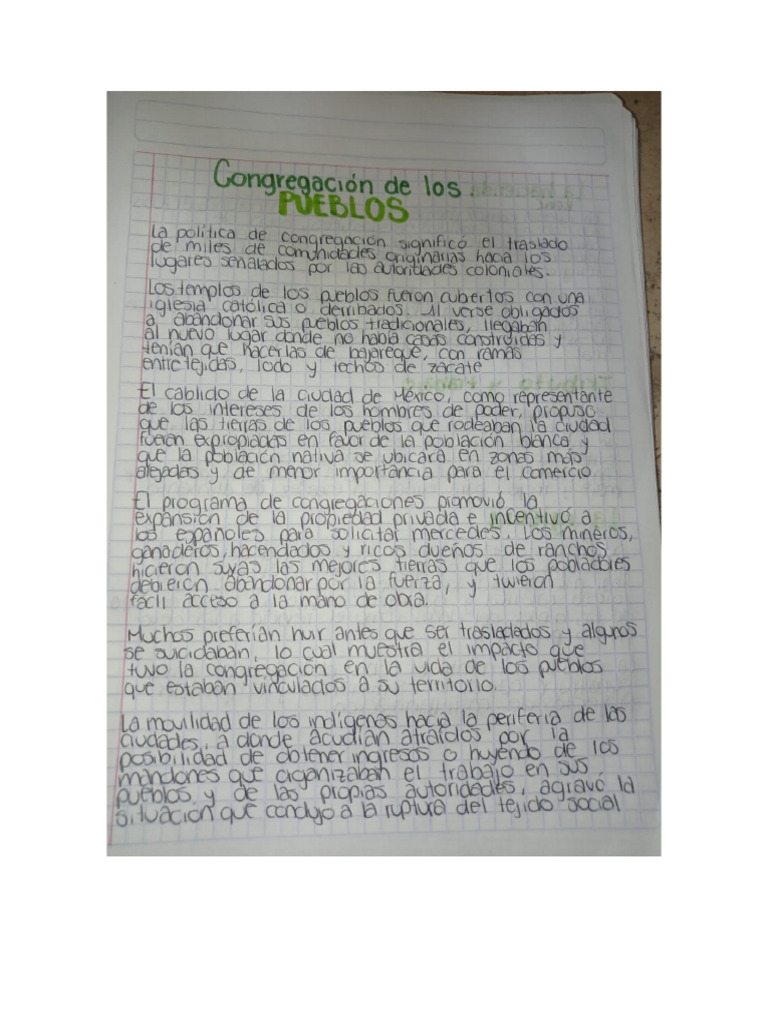 Congregación de los
PUEBLOS
La política de congregación significó el traslado
de miles de comunidades originarias hacia los
lugares señalados por las autoridades coloniales.
Los templos de los pueblos fueron cubiertos con una
iglesia católica o derribados. Al verse obligados
a abandonar sus pueblos tradicionales, llegaban
al nuevo lugar donde no había casas construidas y
tenían que hacerlas de bajareque, con ramas
entretejidas, lodo y techos de zacate
El cablido de la ciudad de México, como representante
de los intereses de los hombres de poder, propuso
que las tierras de los pueblos que rodeaban la ciudad
fueran expropiadas en favor de la población blanca y
que la población nativa se ubicara en zonas más
alejadas y de menor importancia para el comercio
El programa de congregaciones promovió la
expansión de la propiedad privada e incentivó a
los españoles para solicitar mercedes. Los mineros,
ganaderos, hacendados y ricos dueños de ranchos
hicieron suyas las mejores tierras que los pobladores
debieron abandonar por la fuerza, y tuvieron
fácil acceso a la mano de obra.
Muchos preferían huir antes que ser trasladados y algunos
se suicidaban, lo cual muestra el impacto que
tuvo la congregación en la vida de los pueblos
que estaban vinculados a su territorio.
La movilidad de los indígenas hacia la periferia de las
ciudades, a donde acudían atraídos por la
posibilidad de obtener ingresos o huyendo de los
mandones que organizaban el trabajo en sus
pueblos y de las propias autoridades, agravó la
situación que condujo a la ruptura del tejido social